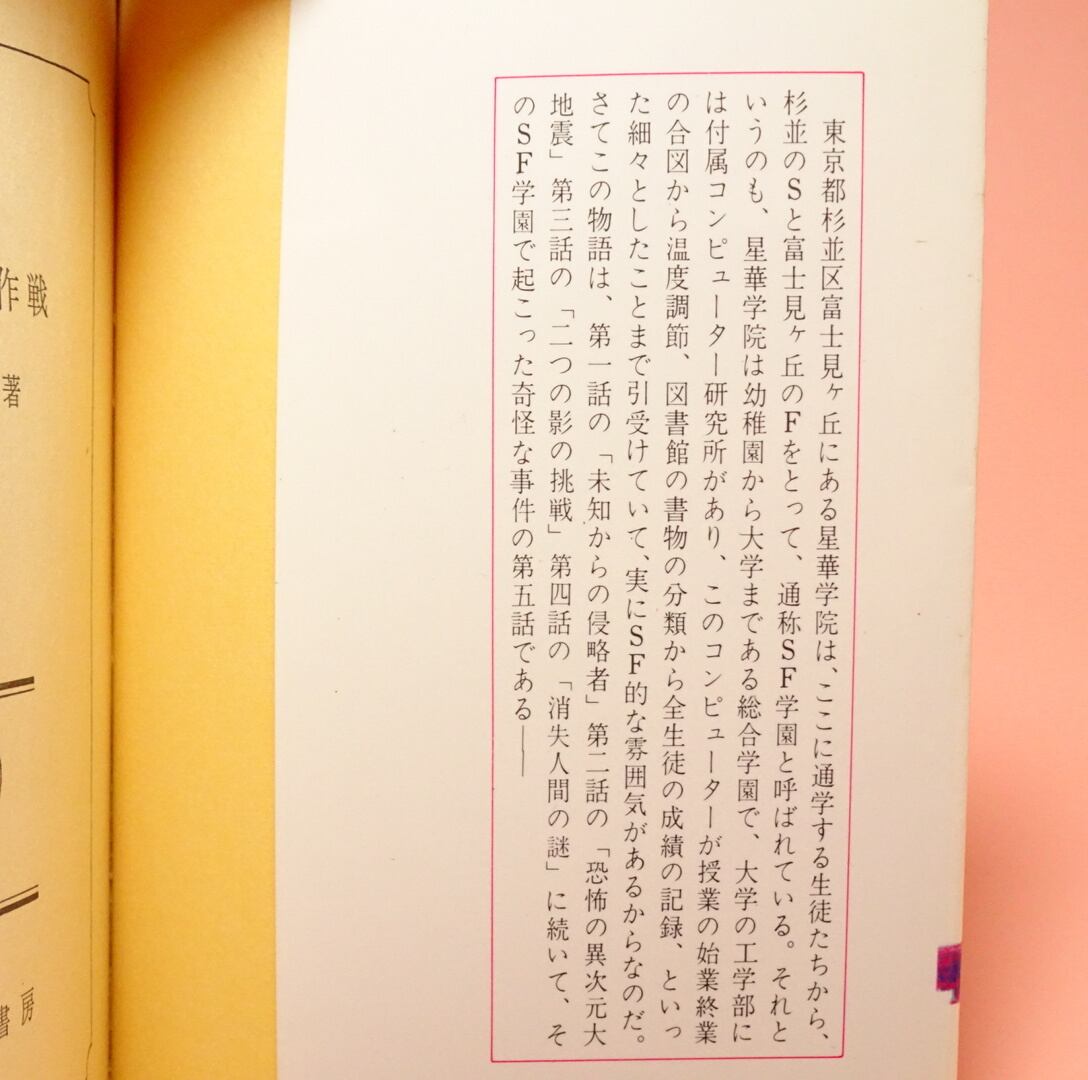 東京都杉並区富士見ヶ丘にある星華学院は、ここに通学する生徒たちから、
杉並のSと富士見ヶ丘のFをとって、通称SF学園と呼ばれている。それと
いうのも、星華学院は幼稚園から大学まである総合学園で、大学の工学部に
は付属コンピューター研究所があり、このコンピューターが授業の始業終業
の合図から温度調節、図書館の書物の分類から全生徒の成績の記録、といっ
た細々としたことまで引受けていて、実にSF的な雰囲気があるからなのだ。
さてこの物語は、第一話の「未知からの侵略者」第二話の「恐怖の異次元大
地震」第三話の「二つの影の挑戦」第四話の「消失人間の謎」に続いて、そ
のSF学園で起こった奇怪な事件の第五話である――
作戦
著
書房